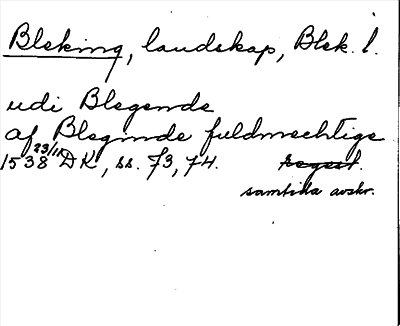 Bleking, landskap, Blek. l.
udi Blegende
af Bleginde fuldmechtige
1538 23/11 DK, ss. 73, 74. regest.
samtida avskr.